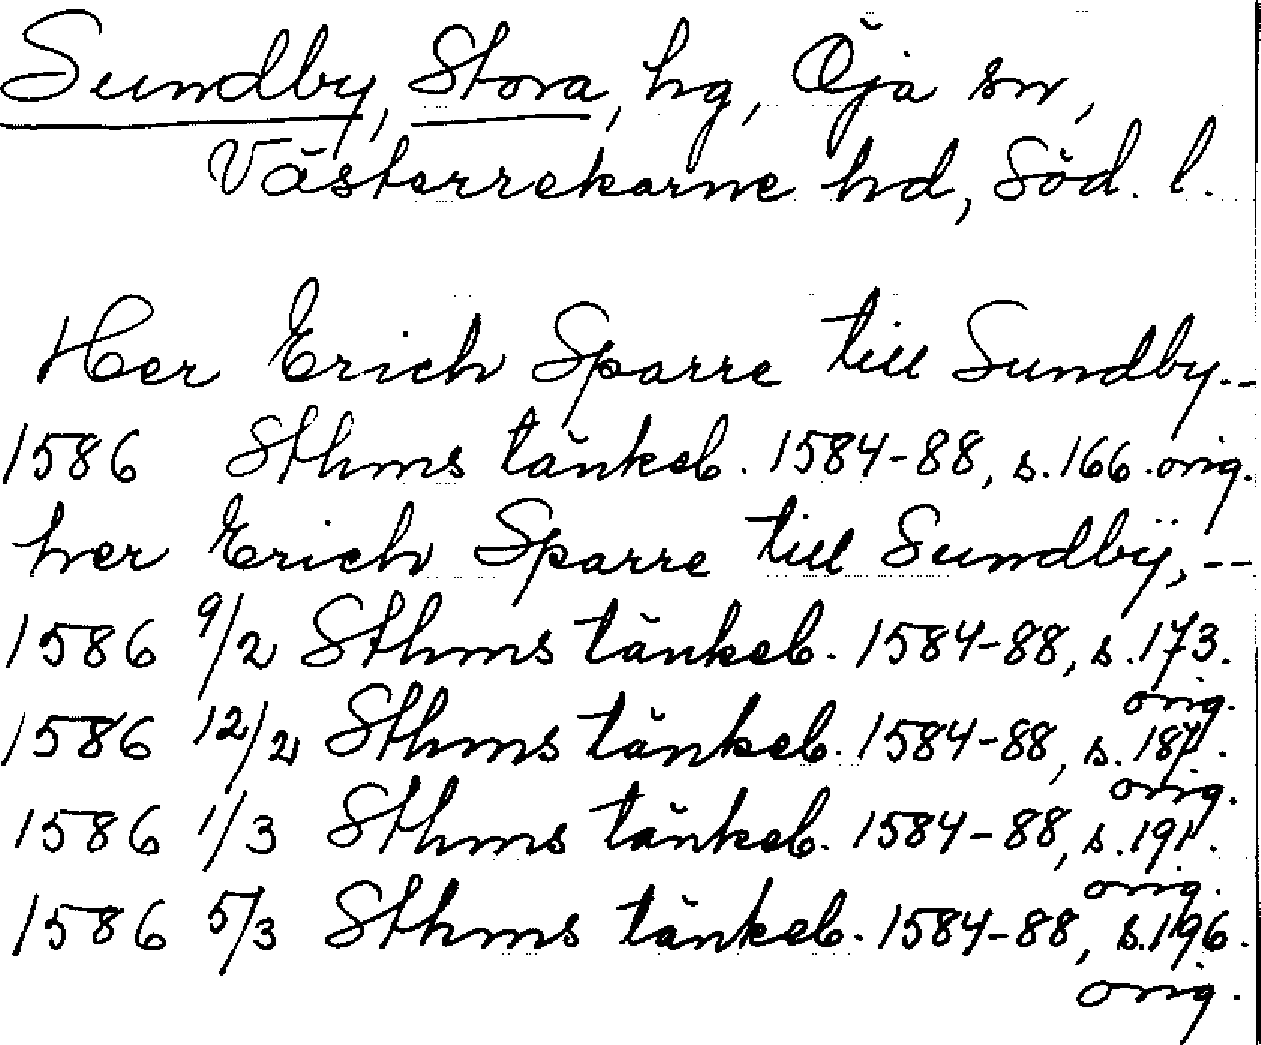 Sundby, Stora, hg, Öja sn,
Västerrekarne hd, Söd. l.
Her Erich Sparre till Sundby.--
1586 Sthms tänkeb. 1584-88, s. 166. orig.
her Erich Sparre till Sundbÿ, --
1586 9/2 Sthms tänkeb. 1584-88, s. 173.
orig.
1586 12/2 Sthms tänkeb. 1584-88, s. 187.
orig.
1586 1/3 Sthms tänkeb. 1584-88, s. 191.
orig.
1586 5/3 Sthms tänkeb. 1584-88, s. 196.
orig.